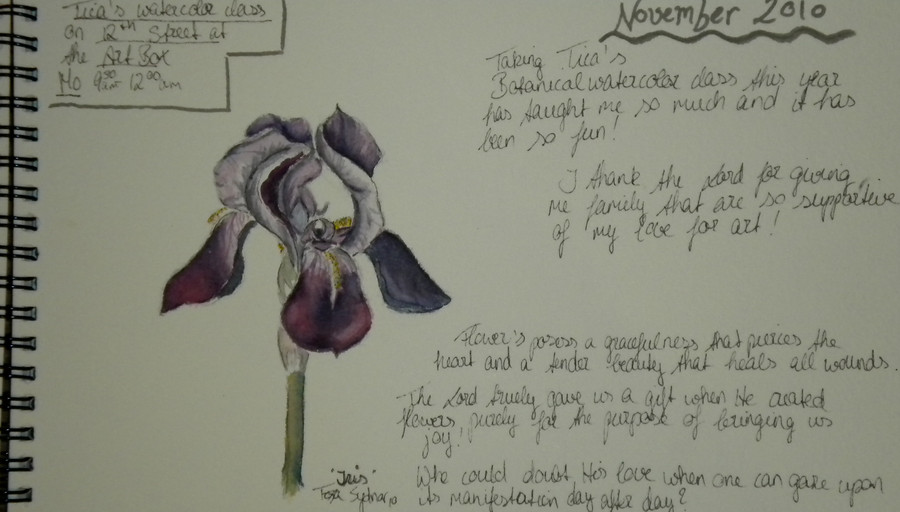 Tica's watercolor class
on 12th Street at
the Art Box
Mo 9:30 am 12:00 am
November 2010
Taking Tica's
Botanical watercolor class this year
has taught me so much and it has
been so fun!
I thank the Lord for giving
me family that are so supportive
of my love for art!
Flower's posess a gracefulness that pierces the
heart and a tender beauty that heals all wounds.
The Lord truely gave us a gift when He created
flowers purely for the purpose of bringing us
joy!
Who could doubt His love when one can gaze upon
its manifestation day after day?
'Iris'